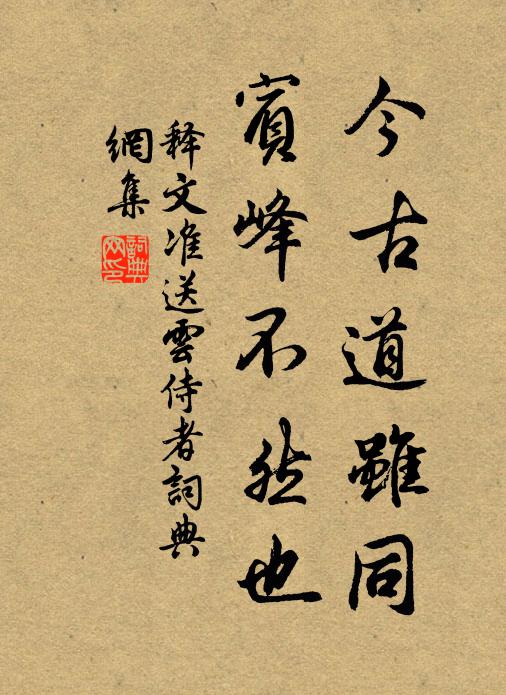 今古道雖同
賓峰不然也
释文准送雲侍者詞典
網集
詞典
网印